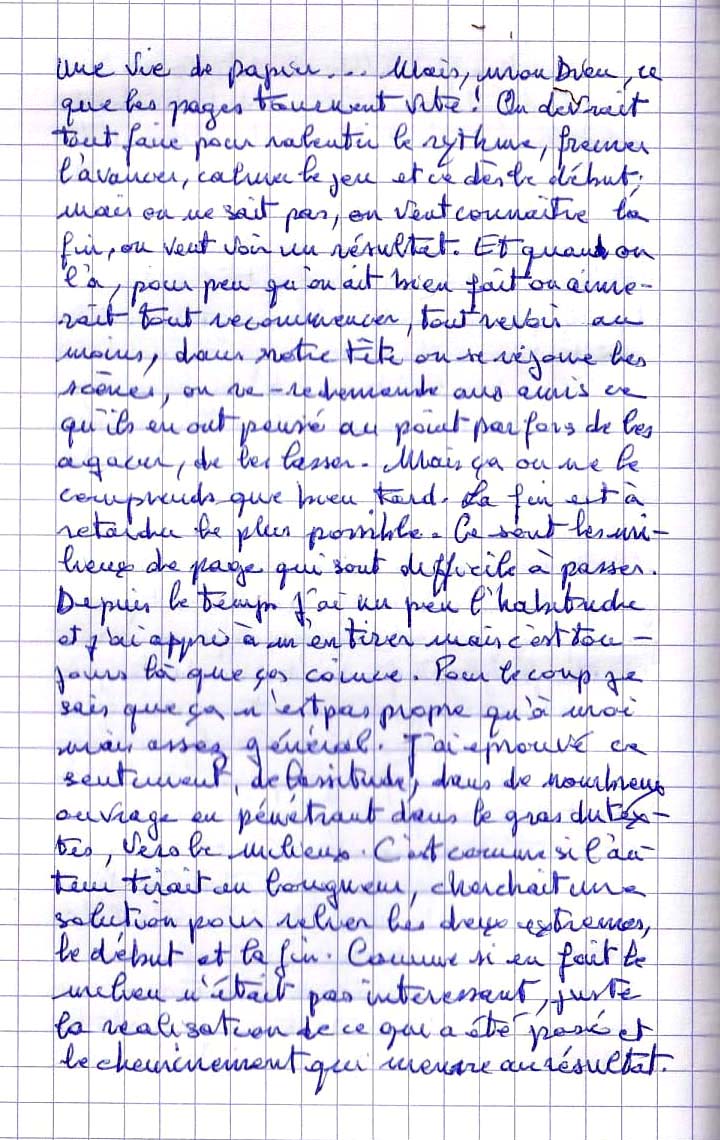 une vie de papier... Mais, mon Dieu, ce
que les pages tournent vite! On devrait
tout faire pour ralentir le rythme, freiner
l'avancer, calmer le jeu et ce dès le début;
mais on ne sait pas, on veut connaître la
fin, on veut voir un résultat. Et quand on
l'a, pour peu qu'on ait bien fait on aime-
rait tout recommencer, tout revoir au
moins, dans notre tête on se rejoue les
scènes, on re-redemande aux amis ce
qu'ils en ont pensé au point parfois de les
agacer, de les lasser. Mais ça on ne le
comprends que bien tard. La fin est à
retarder le plus possible. Ce sont les mi-
lieux de page qui sont difficile à passer.
Depuis le temps j'ai un peu l'habitude
et j'ai appris à m'en tirer mais c'est tou-
jours là que ça coince. Pour le coup je
sais que ça n'est pas propre qu'à moi
mais assez général. J'ai éprouvé ce
sentiment, de lassitude, dans de nombreux
ouvrage en pénétrant dans le gras du tex-
tes, vers le milieux. C'est comme si l'au-
teur tirait en longueur, cherchait une
solution pour relier les deux extremes,
le début et la fin. Comme si en fait le
milieu n'était pas interessant, juste
la realisation de ce qui a été posé et
le cheminement qui menne au résultat.